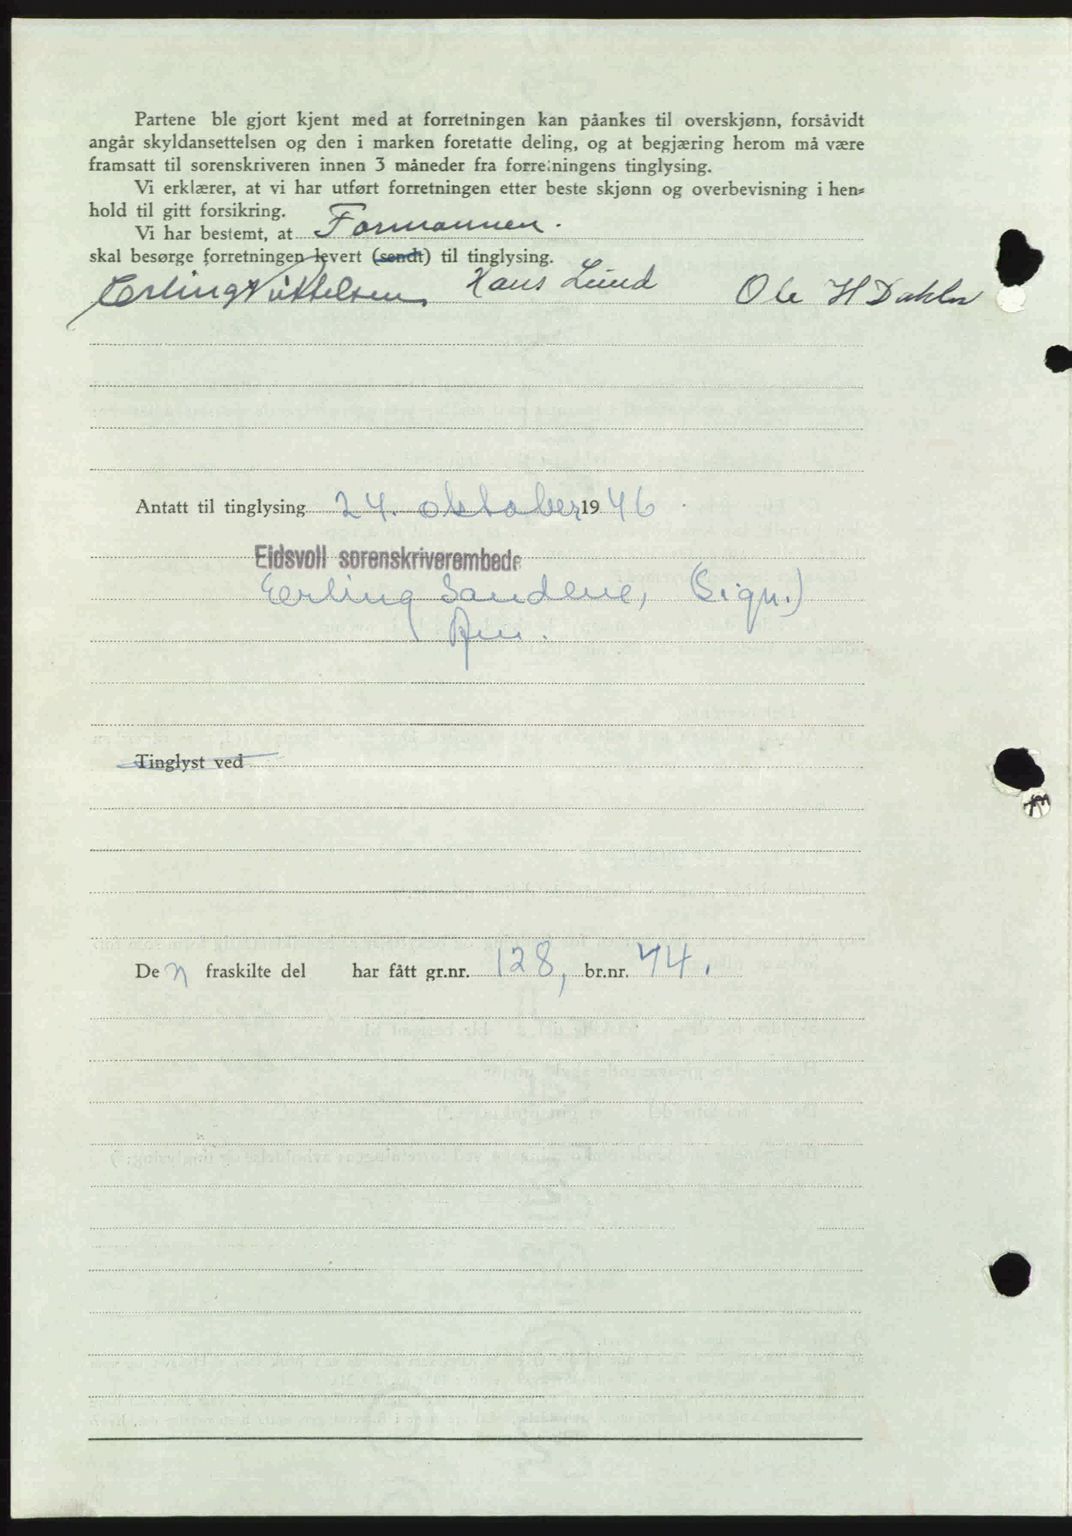 Partene ble gjort kjent med at forretningen kan påankes til overskjønn, forsåvidt
angår skyldansettelsen og den i marken foretatte deling, og at begjæring herom må være
framsatt til sorenskriveren innen 3 måneder fra forretningens tinglysing.
Vi erklærer, at vi har utført forretningen etter beste skjønn og overbevisning i hen-
hold til gitt forsikring.
Vi har bestemt, at Formannen.
skal besørge forretningen levert (sendt) til tinglysing.
Erling Vittelsen Hans Lund Ole H Dahler
Antatt til tinglysing 24. oktober 1946
Eidsvoll sorenskriverembede
Erling Sandene, (sign.)
Tinglyst ved
Den fraskilte del har fått gr.nr. 128, br.nr. 74.